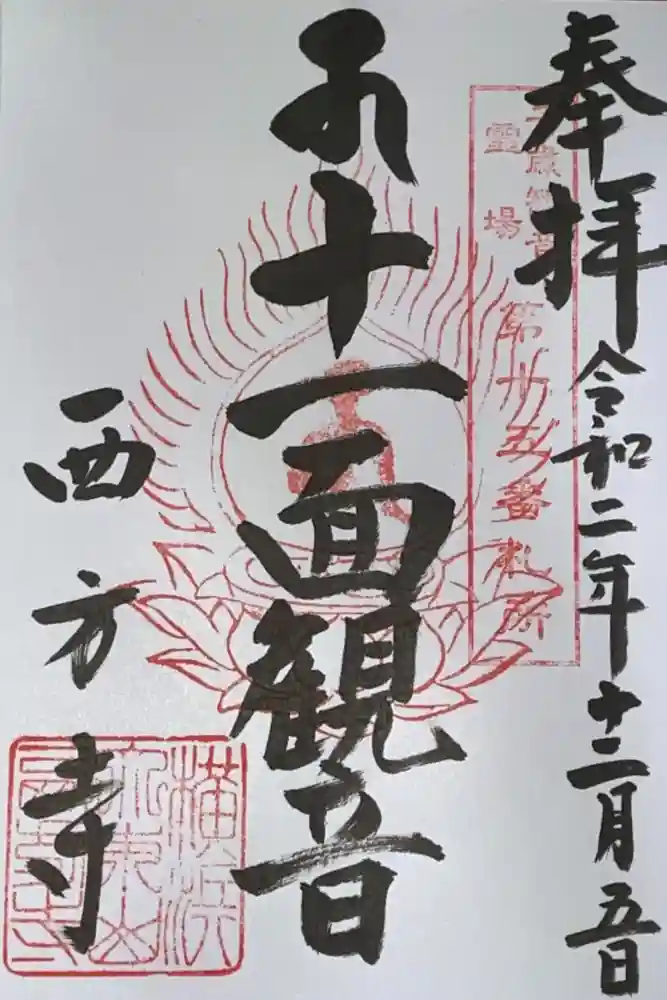 奉拝 令和二年十二月五日
霊場 第廿五番札所
十一面観音
西方寺
横浜